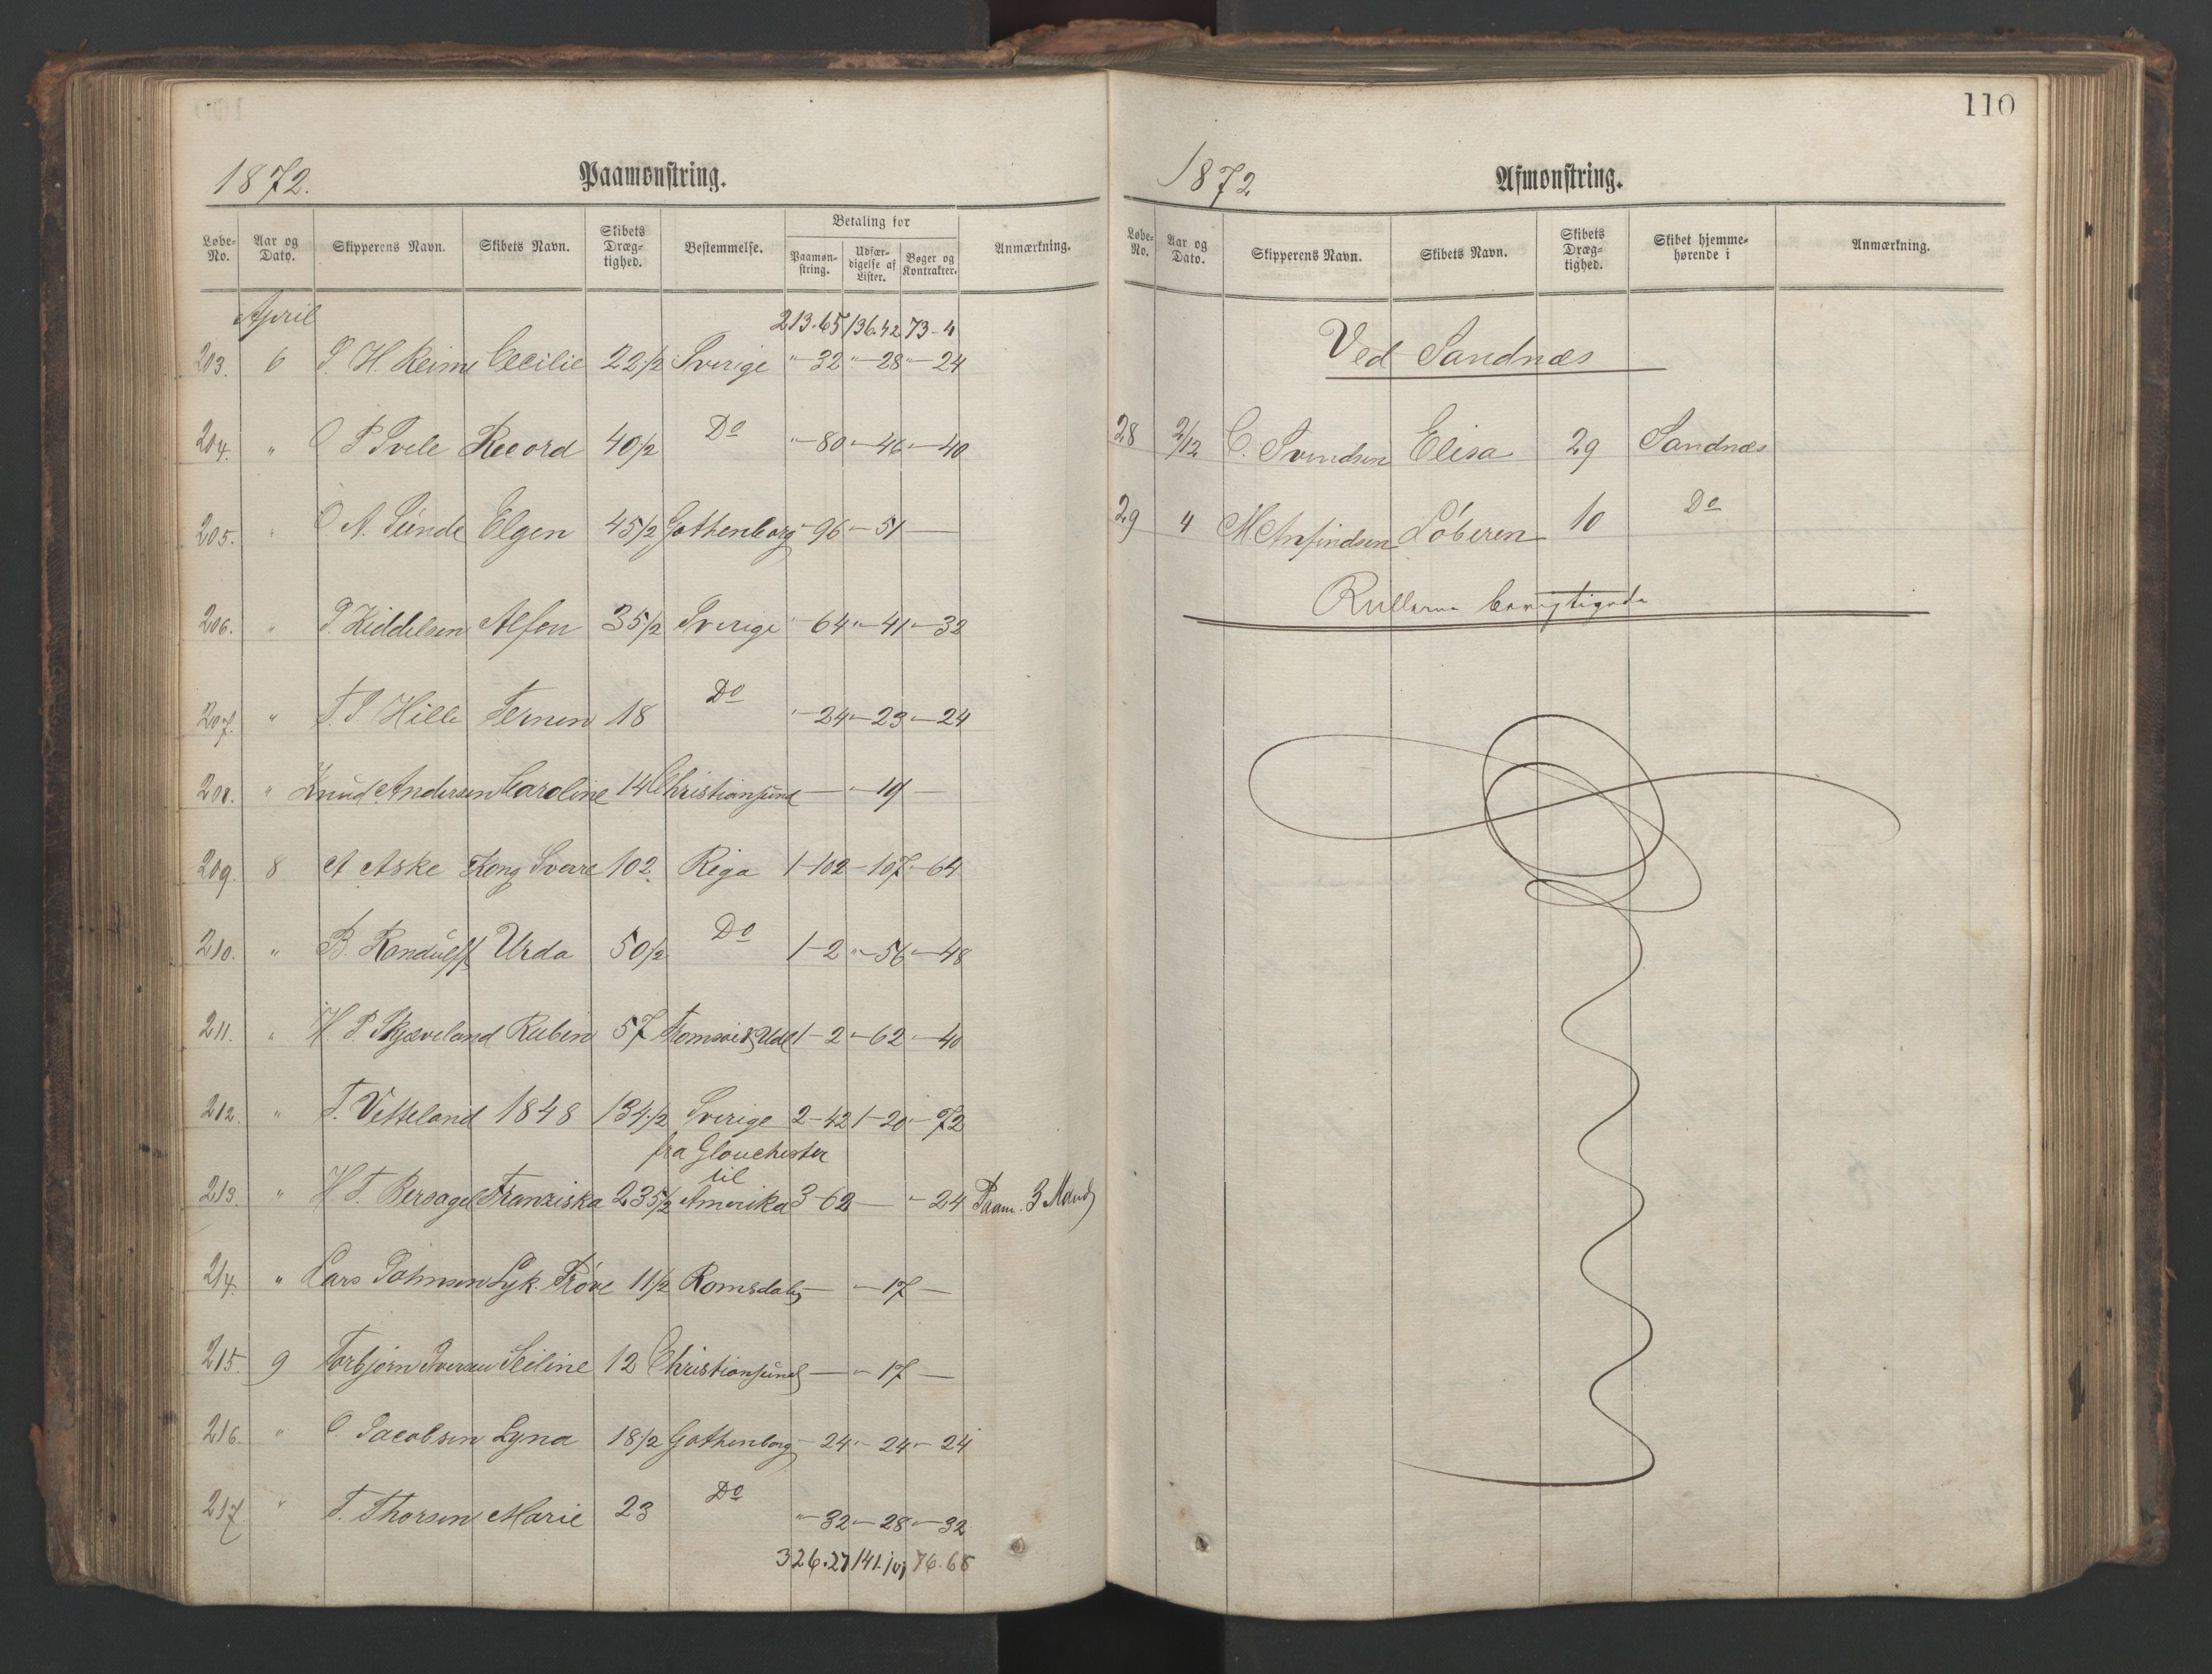 1872. Paamønstring.
Løbe-No. Aar og Dato. Skipperens Navn. Skibets Navn. Skibets Dræg-tighed. Bestemmelse. Betaling for Paamøn-string. Udfær-digelse af Lister. Bøger og Kontrakter. Anmærkning.
April 213.65 136.42 73-4
203. 6 P. H. Reime Cecilie 22 1/2 Sverige "-32 "-28 "-24
204. " O P Svele Record 40 1/2 Do "-80 "-46 "-40
205. " O A. Sünde Elgen 45 1/2 Gothenborg "-96 "-51 —
206. " P. Kiddelsen Alfen 35 1/2 Sverige "-64 "-41 "-32
207. " T. P Hille Ternen 18 Do "-24 "-23 "-24
208. " Knud Andersen Caroline 14 Christiansund — "-19 —
209. 8 A Aske Kong Sverre 102 Riga 1-102 -107 "-64
210. " B. Randulff Urda 50 1/2 Do 1-2 "-56 "-48
211. " H. P. Skjæveland Rubin 57 Tromsø & Udl 1-2 "-62 "-40
212. " T. Vetteland 1848 134 1/2 Sverige 2-42 1-20 "-72
fra Glouchester
til
213. " H. T. Bersagel Franziska 235 1/2 Amerika 3-62 — "-24 Paam. 3 Mand
214. " Lars Johnsen Lyk. Prøve 11 1/2 Romsdalen — "-17 —
215. 9 Torbjørn Iversen Seiline 12 Christiansund — "-17 —
216. " O. Jacobsen Lyna 18 1/2 Gothenborg "-24 "-24 "-24
217. " T. Thorsen Marie 23 Do "-32 "-28 "-32
326.27 141. 76.68
110
1872 Afmønstring.
Løbe-No. Aar og Dato. Skipperens Navn. Skibets Navn. Skibets Dræg-tighed. Skibet hjemme-hørende i Anmærkning.
Ved Sandnæs
28 2/12 C. Svendsen Elisa 29 Sandnæs
29 4 M. Anfindsen Løberen 10 Do
Rullerne